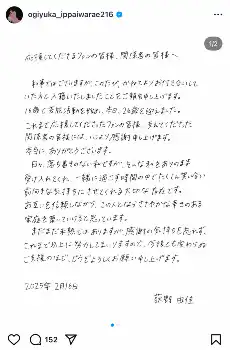 ogiyuka_ippaiwarae216
1/2
応援してくださるファンの皆様、関係者の皆様へ
私事ではございますが、このたび、かねてよりお付き合いして
いた方と入籍いたしましたことをご報告申し上げます。
16歳で芸能活動を始め、本日、26歳を迎えました。
これまで応援してくださったファンの皆様、支えてくださった
関係者の皆様には、心より感謝申し上げます。
本当に、ありがとうございます。
日々、落ち着きのない私ですが、そんな私をありのまま
受け入れてくれ、一緒に過ごす時間の中でたくさん笑い合い
前向きな気持ちにさせてくれる大切な存在です。
お互いを信頼しながら、この人とならささやかな幸せのある
家庭を築いていけると思っています。
まだまだ未熟ではありますが、感謝の気持ちを忘れず、
これまで以上に努力してまいりますので、今後とも変わらぬ
ご支援のほど、どうぞよろしくお願い申し上げます。
2025年2月16日
荻野由佳
152